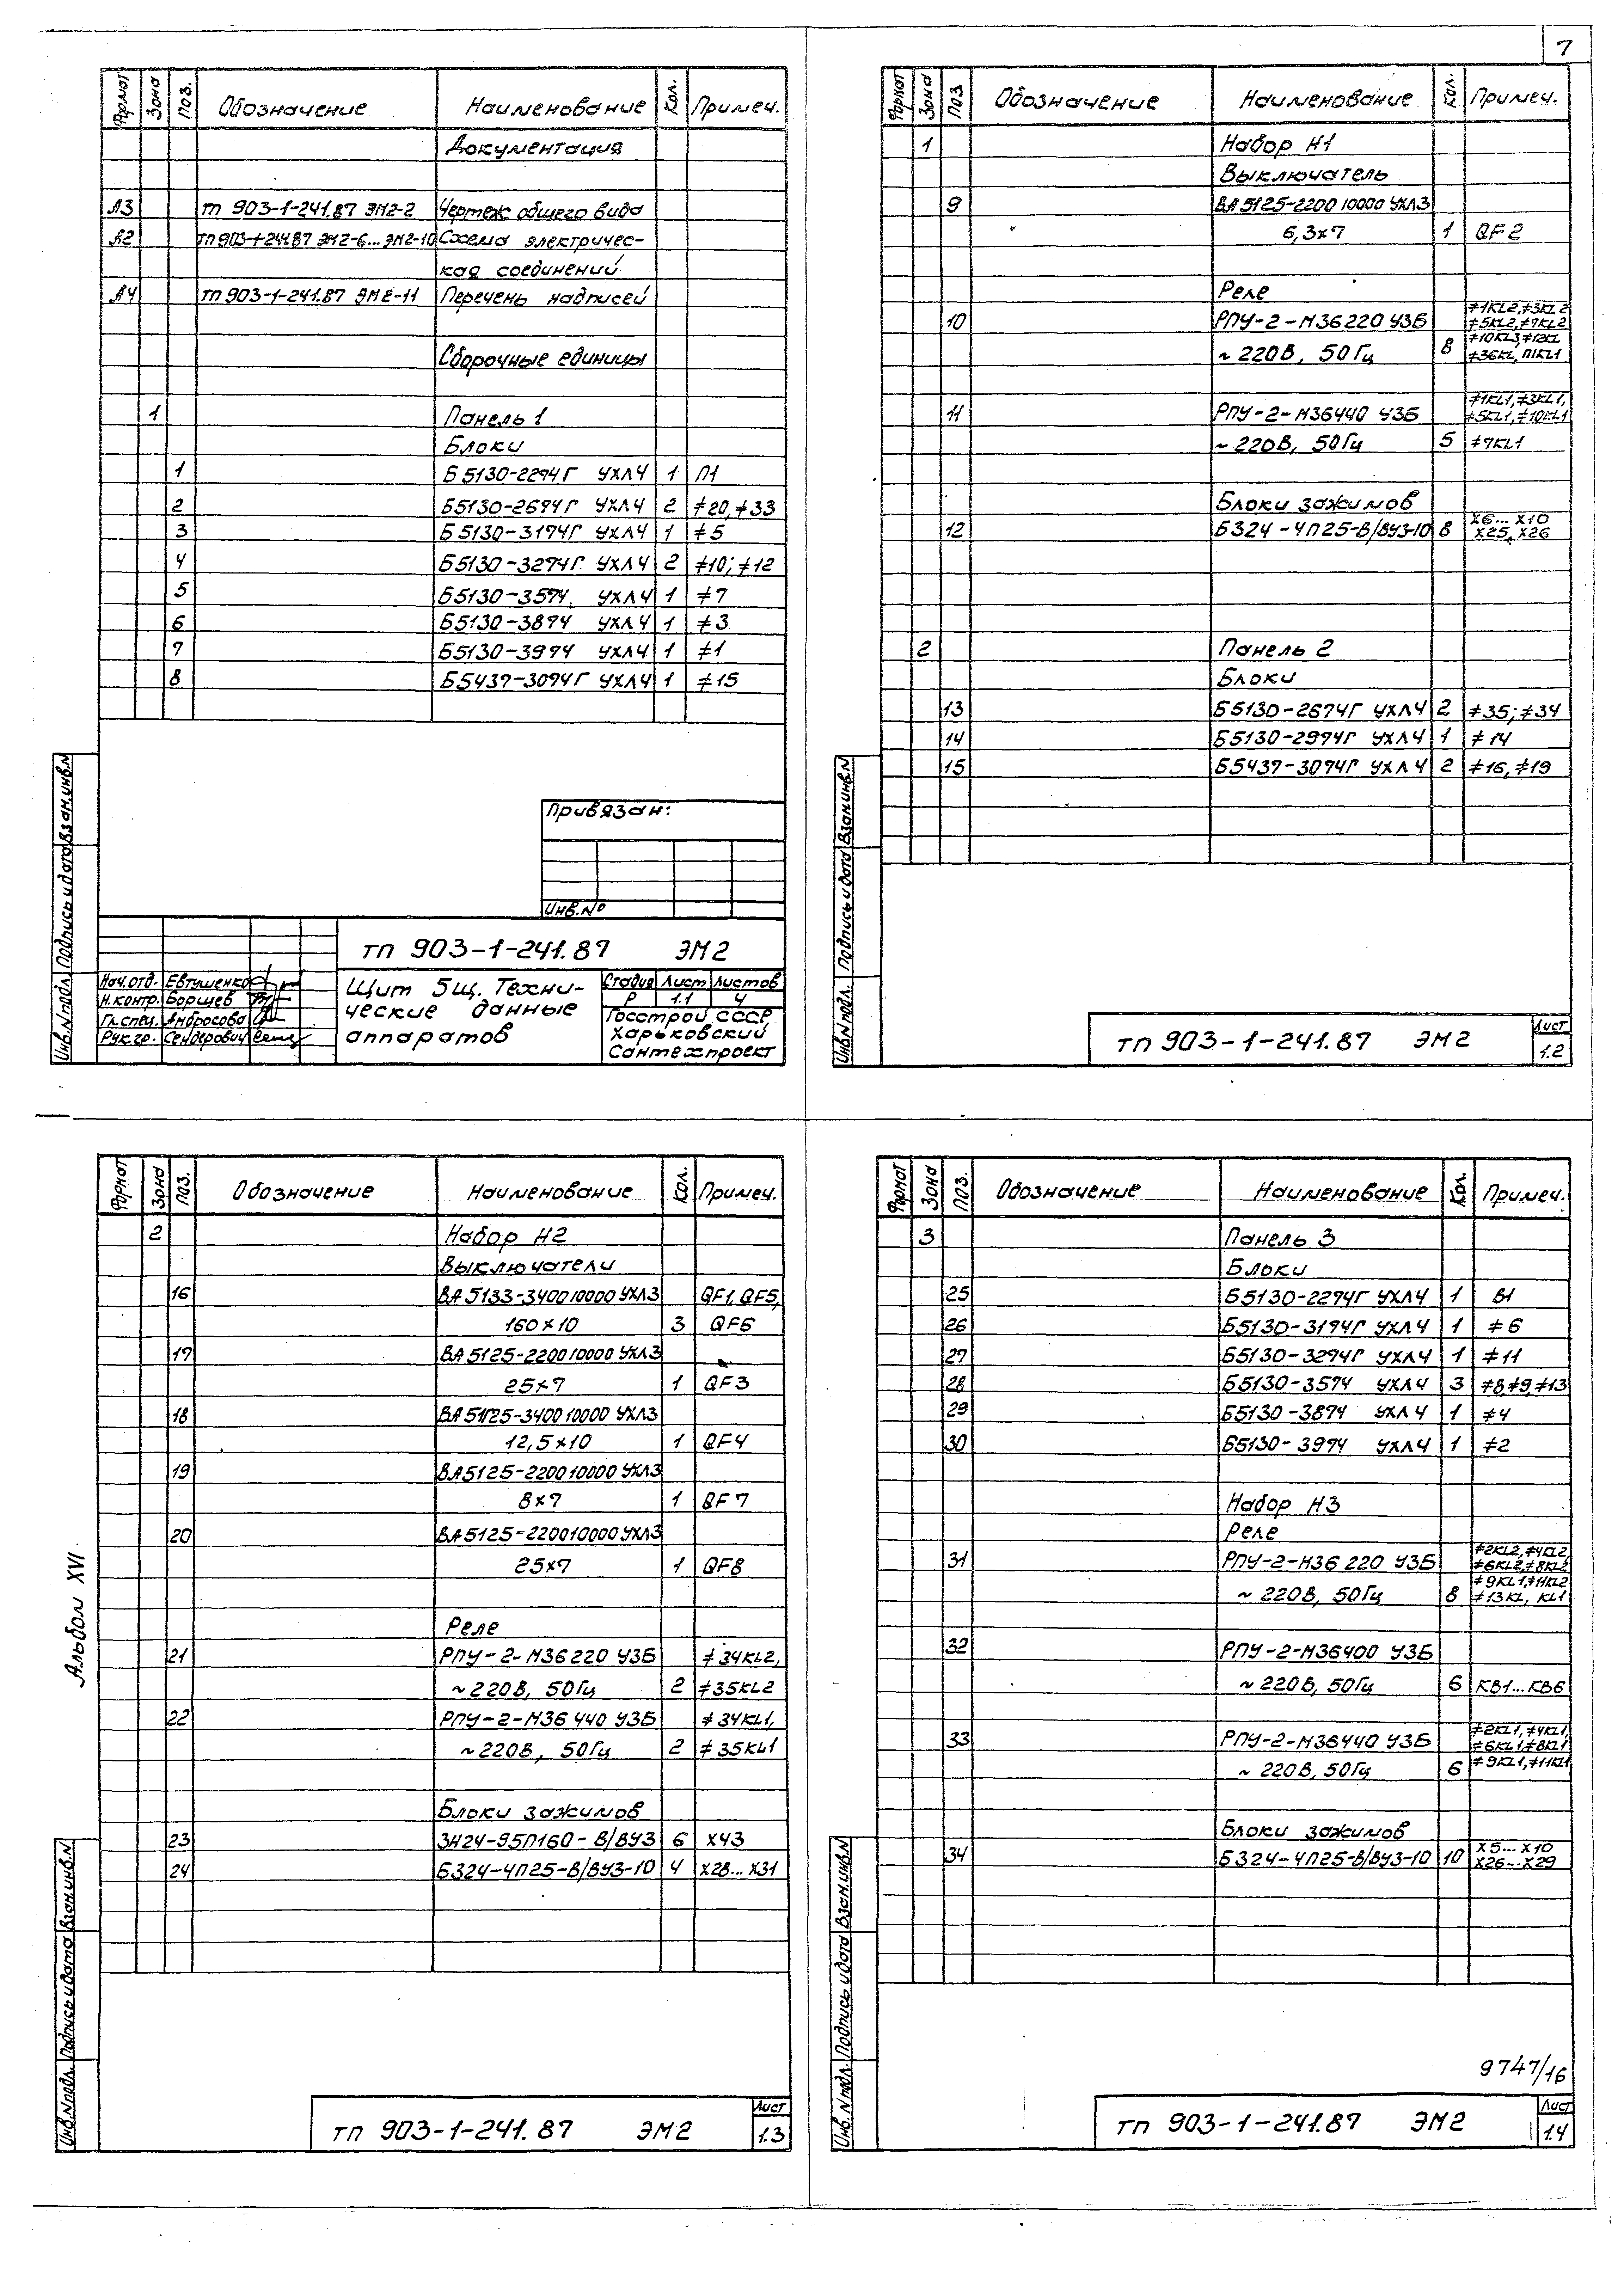 7
Формат Зона Поз. Обозначение Наименование Кол. Примеч.
Документация
А3 ТП 903-1-241.87 ЭМ2-2 Чертеж общего вида
А2 ТП 903-1-241.87 ЭМ2-6...ЭМ2-10 Схема электричес-
кая соединений
А4 ТП 903-1-241.87 ЭМ2-11 Перечень надписей
Сборочные единицы
1 Панель 1
Блоки
1 Б5130-2274Г УХЛ4 1 П1
2 Б5130-2674Г УХЛ4 2 ≠20, ≠33
3 Б5130-3174Г УХЛ4 1 ≠5
4 Б5130-3274Г УХЛ4 2 ≠10; ≠12
5 Б5130-3574 УХЛ4 1 ≠7
6 Б5130-3874 УХЛ4 1 ≠3
7 Б5130-3974 УХЛ4 1 ≠1
8 Б5437-3074Г УХЛ4 1 ≠15
Привязан:
Инв.№
ТП 903-1-241.87 ЭМ2
Нач.отд. Евтушенко
Н.контр. Борщев
Гл.спец. Амбросова
Рук.гр. Сендерович
Щит 5щ. Техни-
ческие данные
аппаратов
Стадия Лист Листов
Р 1.1 4
Госстрой СССР
Харьковский
Сантехпроект
Инв.№подл. Подпись и дата Взам.инв.№
Формат Зона Поз Обозначение Наименование Кол. Примеч.
1 Набор Н1
Выключатель
9 ВА5125-220010000 УХЛ3
6,3х7 1 QF2
Реле
10 РПУ-2-М36220 У3Б ≠1KL2, ≠3KL2
≠5KL2, ≠7KL2
~ 220В, 50Гц 8 ≠10KL3, ≠12KL
≠36KL, П1KL1
11 РПУ-2-М36440 У3Б ≠1KL1, ≠3KL1,
≠5KL1, ≠10KL1
~ 220В, 50Гц 5 ≠7KL1
Блоки зажимов
12 Б324-4П25-В/ВУ3-10 8 Х6...Х10
Х25, Х26
2 Панель 2
Блоки
13 Б5130-2674Г УХЛ4 2 ≠35; ≠34
14 Б5130-2974Г УХЛ4 1 ≠14
15 Б5437-3074Г УХЛ4 2 ≠16, ≠19
Инв.№подл. Подпись и дата Взам.инв.№
ТП 903-1-241.87 ЭМ2
Лист
1.2
Формат Зона Поз. Обозначение Наименование Кол. Примеч.
2 Набор Н2
Выключатели
16 ВА5133-340010000 УХЛ3 QF1, QF5,
160х10 3 QF6
17 ВА5125-220010000 УХЛ3
25х7 1 QF3
18 ВА5125-340010000 УХЛ3
12,5х10 1 QF4
19 ВА5125-220010000 УХЛ3
8х7 1 QF7
20 ВА5125-220010000 УХЛ3
25х7 1 QF8
Реле
21 РПУ-2-М36220 У3Б ≠34KL2,
~220В, 50Гц 2 ≠35KL2
22 РПУ-2-М36440 У3Б ≠34KL1,
~220В, 50Гц 2 ≠35KL1
Блоки зажимов
23 ЗН24-95П160-В/ВУ3 6 Х43
24 Б324-4П25-В/ВУ3-10 4 Х28...Х31
Альбом XVI
Инв.№подл. Подпись и дата Взам.инв.№
ТП 903-1-241.87 ЭМ2
Лист
1.3
Формат Зона Поз. Обозначение Наименование Кол. Примеч.
3 Панель 3
Блоки
25 Б5130-2274Г УХЛ4 1 В1
26 Б5130-3174Г УХЛ4 1 ≠6
27 Б5130-3274Г УХЛ4 1 ≠11
28 Б5130-3574 УХЛ4 3 ≠8, ≠9, ≠13
29 Б5130-3874 УХЛ4 1 ≠4
30 Б5130-3974 УХЛ4 1 ≠2
Набор Н3
Реле
31 РПУ-2-М36220 У3Б ≠2KL2, ≠4KL2,
≠6KL2, ≠8KL2
~ 220В, 50Гц 8 ≠9KL1, ≠11KL2
≠13KL, KL1
32 РПУ-2-М36400 У3Б
~ 220В, 50Гц 6 КВ1...КВ6
33 РПУ-2-М36440 У3Б ≠2KL1, ≠4KL1,
≠6KL1, ≠8KL1
~ 220В, 50Гц 6 ≠9KL1, ≠11KL1
Блоки зажимов
34 Б324-4П25-В/ВУ3-10 10 Х5...Х10
Х26...Х29
Инв.№подл. Подпись и дата Взам.инв.№
9747/16
ТП 903-1-241.87 ЭМ2
Лист
1.4